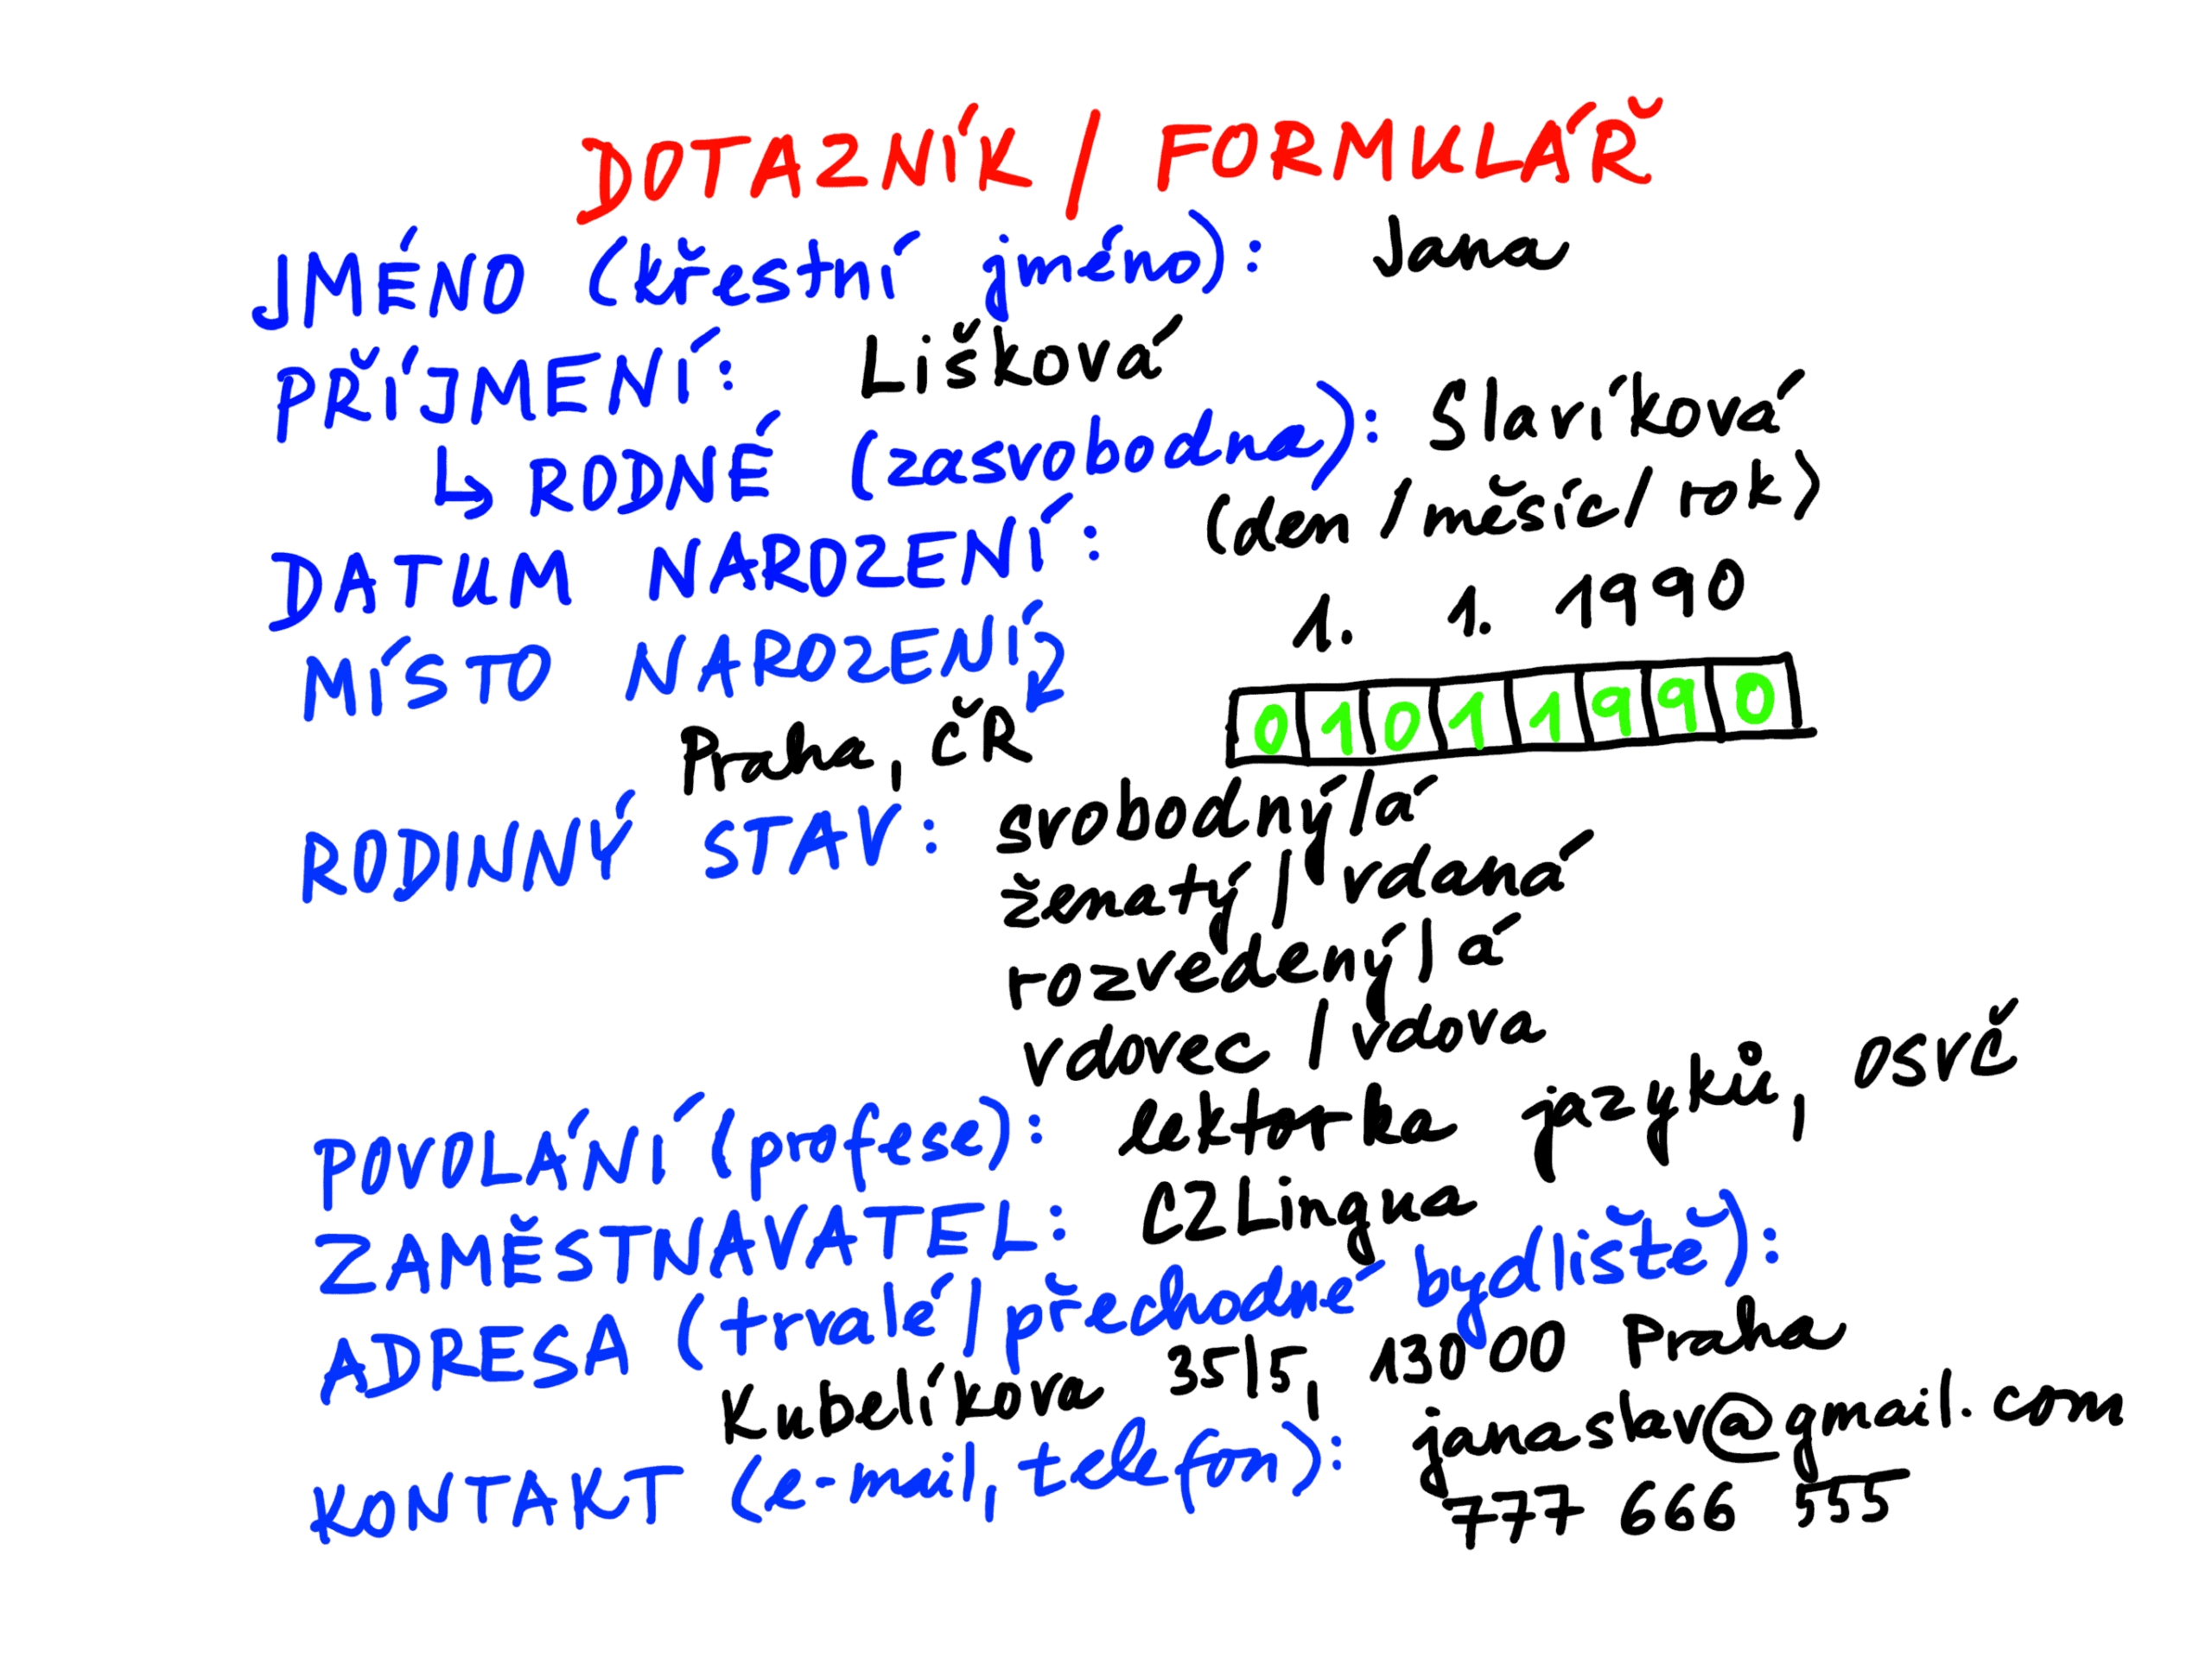 DOTAZNÍK / FORMULÁŘ
JMÉNO (křestní jméno): Jana
PŘÍJMENÍ: Lišková
↳ RODNÉ (zasvobodna): Slavíková
DATUM NAROZENÍ: (den / měsíc / rok)
1. 1. 1990
MÍSTO NAROZENÍ
0 1 0 1 1 9 9 0
Praha, ČR
RODINNÝ STAV: svobodný/á
ženatý / vdaná
rozvedený/á
vdovec / vdova
POVOLÁNÍ (profese): lektorka jazyků, OSVČ
ZAMĚSTNAVATEL: CZLingua
ADRESA (trvalé / přechodné bydliště):
Kubelíkova 35/5, 130 00 Praha
KONTAKT (e-mail, telefon): janaslav@gmail.com
777 666 555